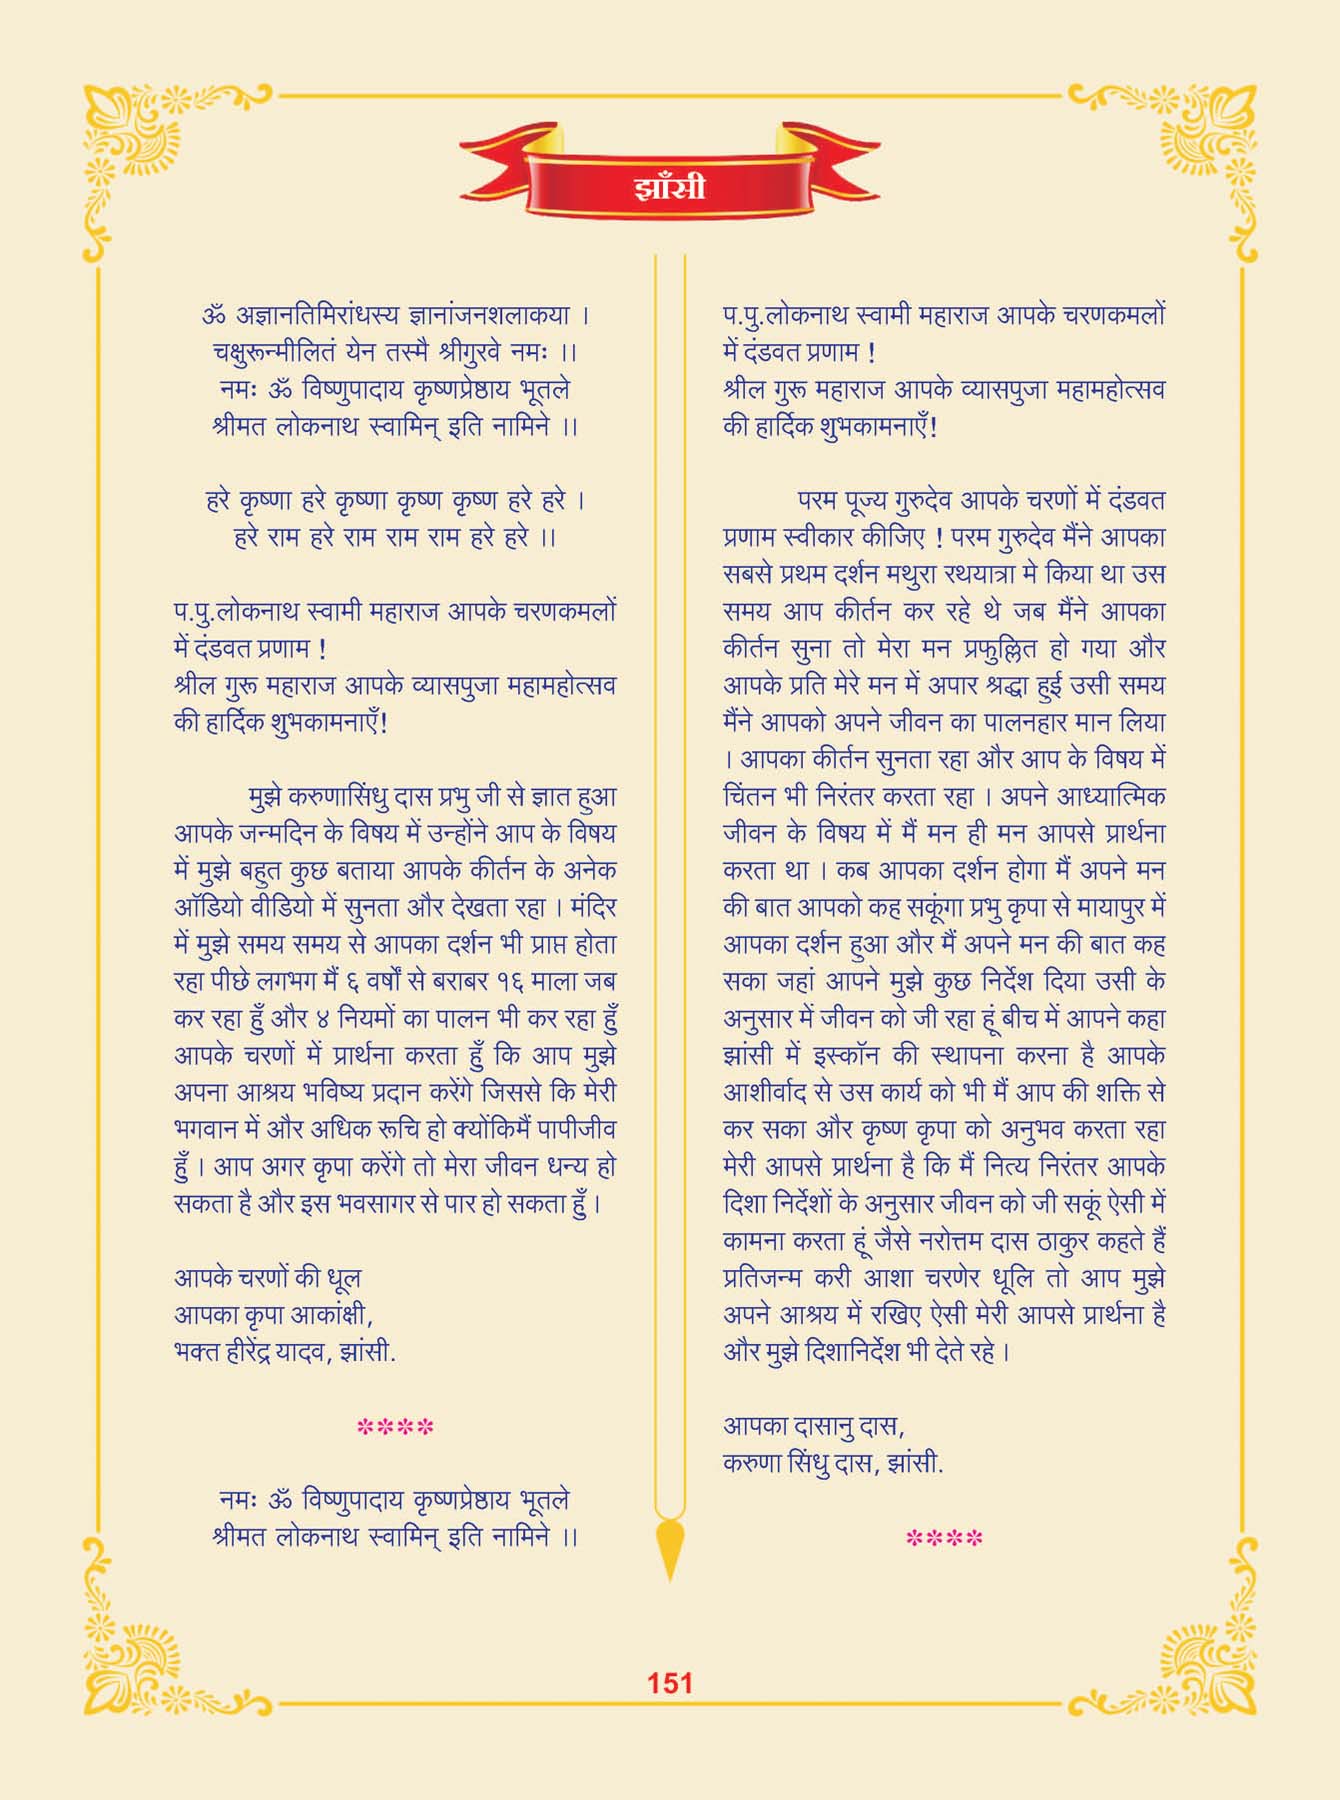 झाँसी
ॐ अज्ञानतिमिरांधस्य ज्ञानांजनशलाकया ।
चक्षुरून्मीलितं येन तस्मै श्रीगुरवे नमः ।।
नमः ॐ विष्णुपादाय कृष्णप्रेष्ठाय भूतले
श्रीमत लोकनाथ स्वामिन् इति नामिने ।।
हरे कृष्णा हरे कृष्णा कृष्ण कृष्ण हरे हरे ।
हरे राम हरे राम राम राम हरे हरे ।।
प.पु.लोकनाथ स्वामी महाराज आपके चरणकमलों
में दंडवत प्रणाम !
श्रील गुरू महाराज आपके व्यासपुजा महामहोत्सव
की हार्दिक शुभकामनाएँ!
मुझे करुणासिंधु दास प्रभु जी से ज्ञात हुआ
आपके जन्मदिन के विषय में उन्होंने आप के विषय
में मुझे बहुत कुछ बताया आपके कीर्तन के अनेक
ऑडियो वीडियो में सुनता और देखता रहा । मंदिर
में मुझे समय समय से आपका दर्शन भी प्राप्त होता
रहा पीछे लगभग मैं ६ वर्षों से बराबर १६ माला जब
कर रहा हुँ और ४ नियमों का पालन भी कर रहा हुँ
आपके चरणों में प्रार्थना करता हुँ कि आप मुझे
अपना आश्रय भविष्य प्रदान करेंगे जिससे कि मेरी
भगवान में और अधिक रूचि हो क्योंकिमैं पापीजीव
हुँ । आप अगर कृपा करेंगे तो मेरा जीवन धन्य हो
सकता है और इस भवसागर से पार हो सकता हुँ ।
आपके चरणों की धूल
आपका कृपा आकांक्षी,
भक्त हीरेंद्र यादव, झांसी.
****
नमः ॐ विष्णुपादाय कृष्णप्रेष्ठाय भूतले
श्रीमत लोकनाथ स्वामिन् इति नामिने ।।
प.पु.लोकनाथ स्वामी महाराज आपके चरणकमलों
में दंडवत प्रणाम !
श्रील गुरू महाराज आपके व्यासपुजा महामहोत्सव
की हार्दिक शुभकामनाएँ!
परम पूज्य गुरुदेव आपके चरणों में दंडवत
प्रणाम स्वीकार कीजिए ! परम गुरुदेव मैंने आपका
सबसे प्रथम दर्शन मथुरा रथयात्रा मे किया था उस
समय आप कीर्तन कर रहे थे जब मैंने आपका
कीर्तन सुना तो मेरा मन प्रफुल्लित हो गया और
आपके प्रति मेरे मन में अपार श्रद्धा हुई उसी समय
मैंने आपको अपने जीवन का पालनहार मान लिया
। आपका कीर्तन सुनता रहा और आप के विषय में
चिंतन भी निरंतर करता रहा । अपने आध्यात्मिक
जीवन के विषय में मैं मन ही मन आपसे प्रार्थना
करता था । कब आपका दर्शन होगा मैं अपने मन
की बात आपको कह सकूंगा प्रभु कृपा से मायापुर में
आपका दर्शन हुआ और मैं अपने मन की बात कह
सका जहां आपने मुझे कुछ निर्देश दिया उसी के
अनुसार में जीवन को जी रहा हूं बीच में आपने कहा
झांसी में इस्कॉन की स्थापना करना है आपके
आशीर्वाद से उस कार्य को भी मैं आप की शक्ति से
कर सका और कृष्ण कृपा को अनुभव करता रहा
मेरी आपसे प्रार्थना है कि मैं नित्य निरंतर आपके
दिशा निर्देशों के अनुसार जीवन को जी सकूं ऐसी में
कामना करता हूं जैसे नरोत्तम दास ठाकुर कहते हैं
प्रतिजन्म करी आशा चरणेर धूलि तो आप मुझे
अपने आश्रय में रखिए ऐसी मेरी आपसे प्रार्थना है
और मुझे दिशानिर्देश भी देते रहे ।
आपका दासानु दास,
करुणा सिंधु दास, झांसी.
****
151